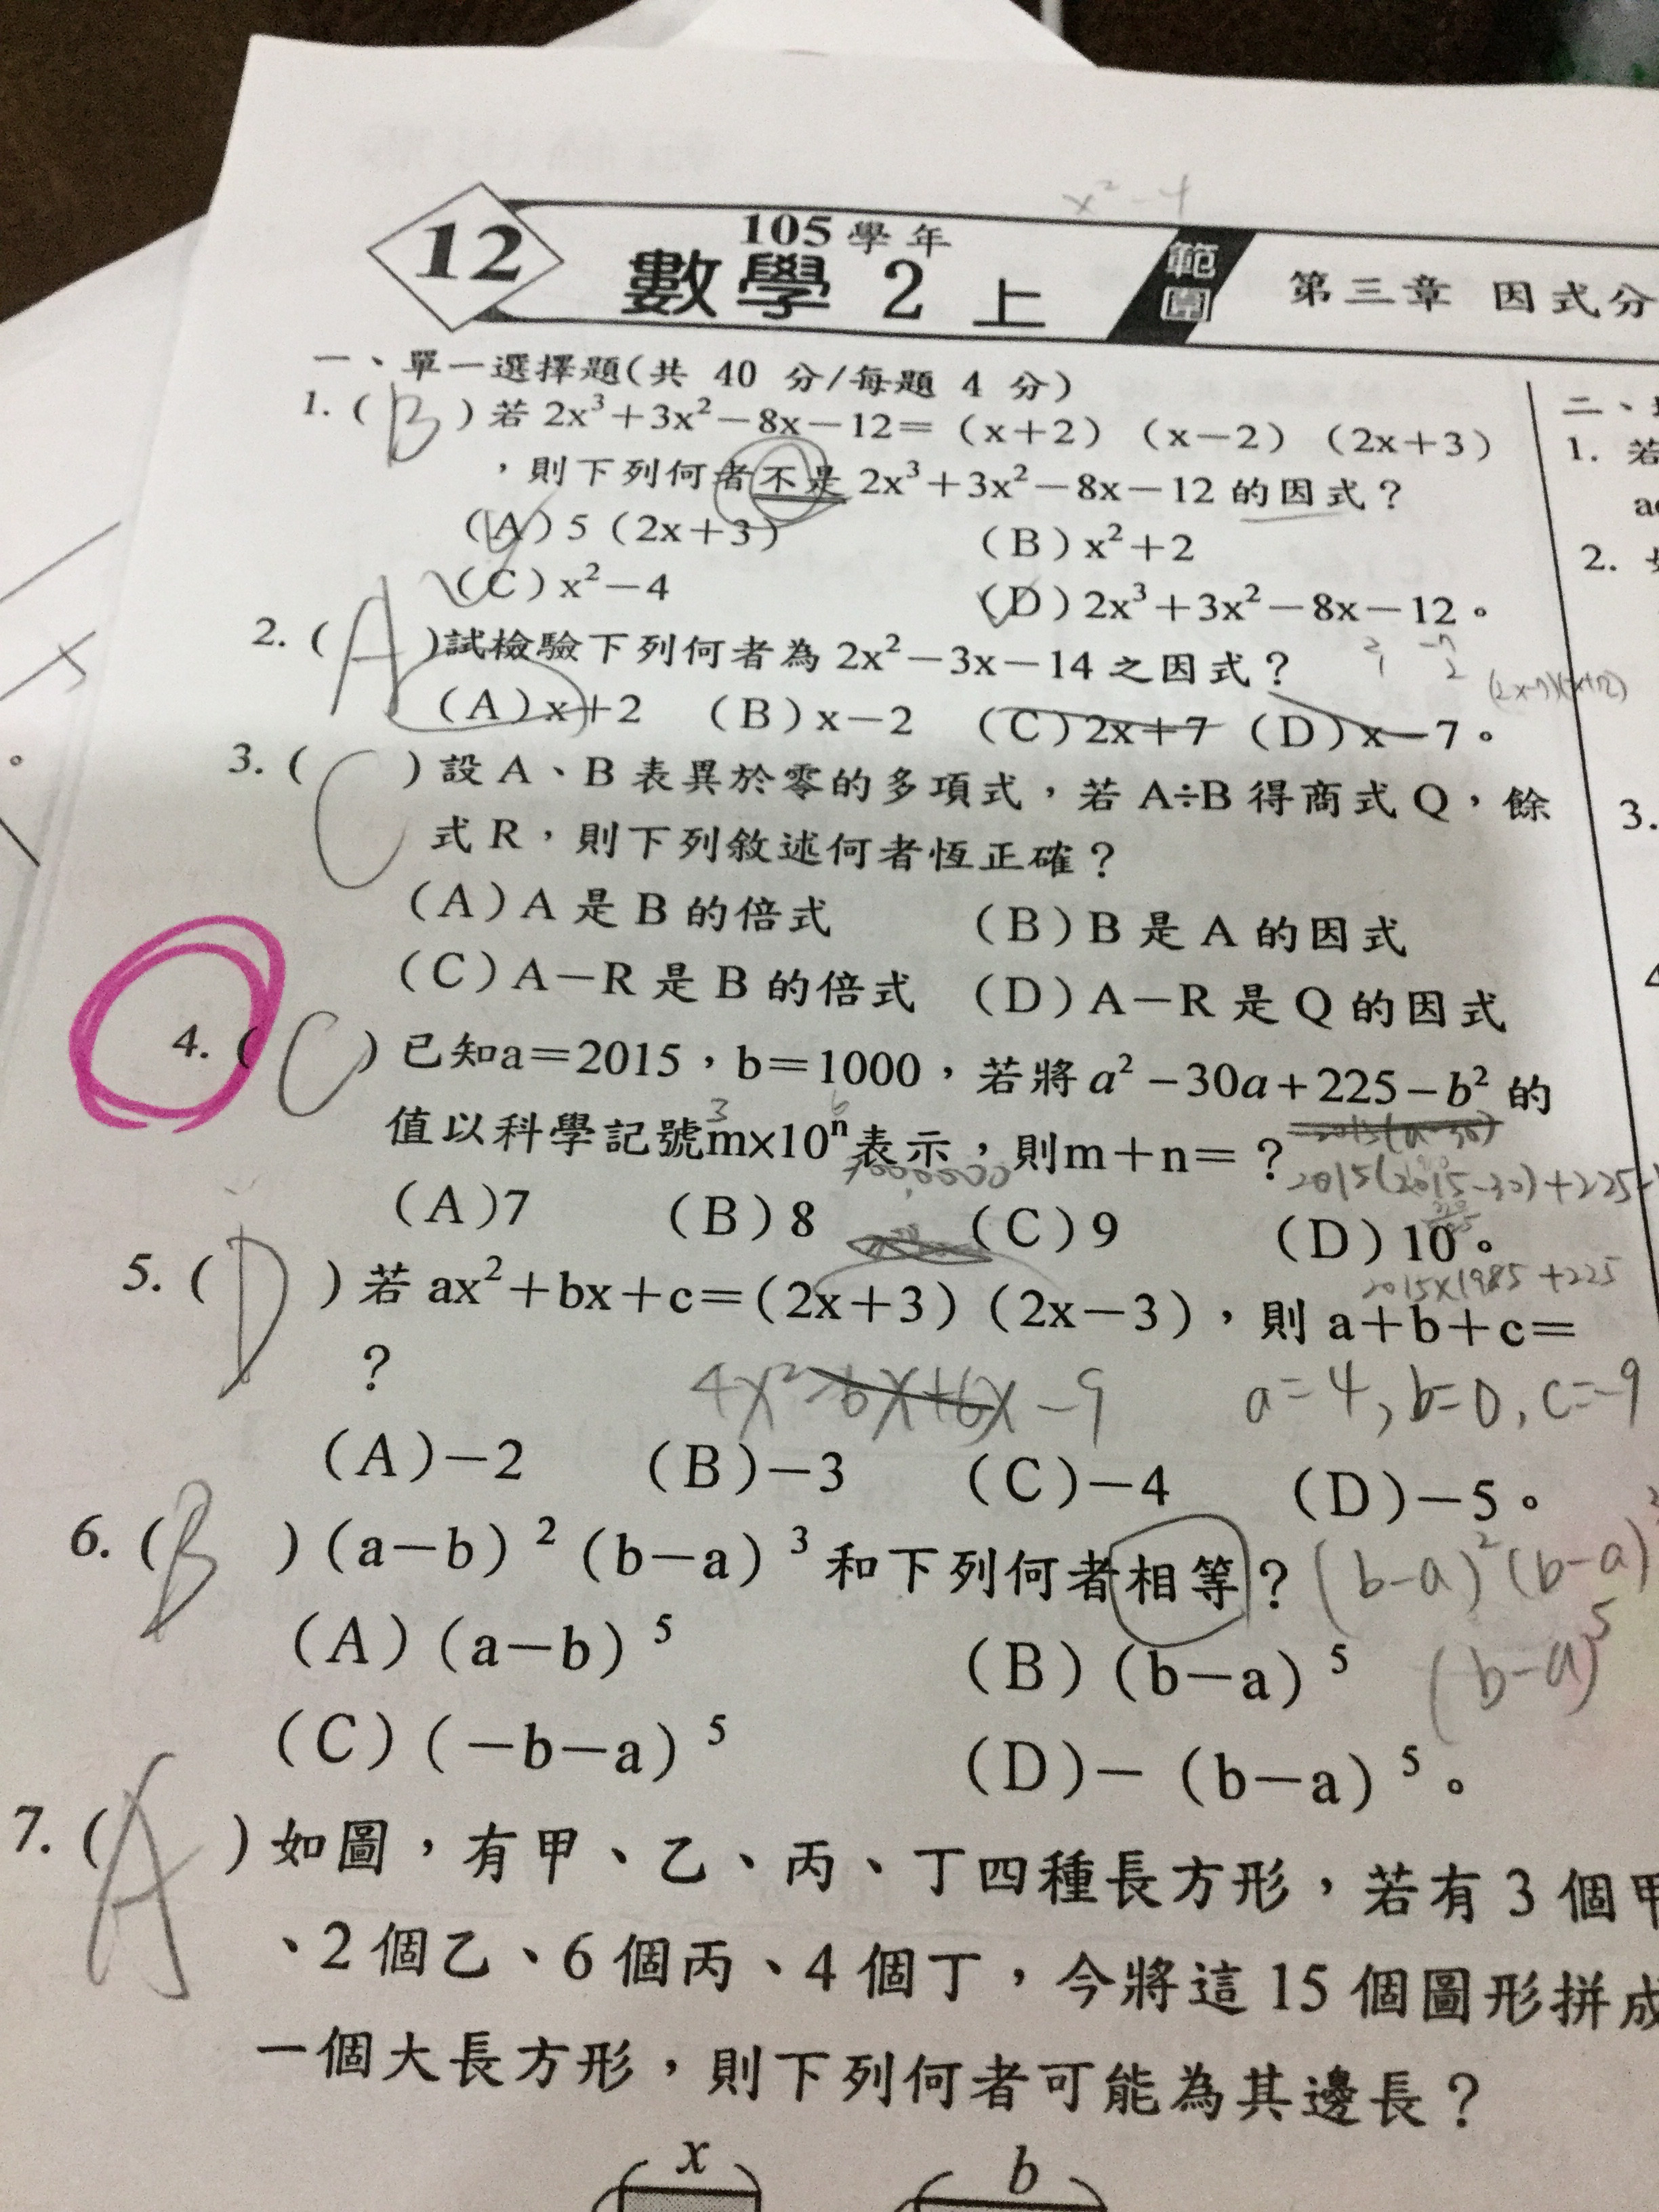 x²-4
12
105學年
數學 2 上
範圍
第三章 因式分
一、單一選擇題(共 40 分/每題 4 分)
1.( B )若 2x³+3x²-8x-12=(x+2)(x-2)(2x+3)
,則下列何者不是 2x³+3x²-8x-12 的因式?
(A)5(2x+3) (B)x²+2
(C)x²-4 (D)2x³+3x²-8x-12。
2.( A )試檢驗下列何者為 2x²-3x-14 之因式?
2 -7
1 2
(2x-7)(x+2)
(A)x+2 (B)x-2 (C)2x+7 (D)x-7。
3.( C )設 A、B 表異於零的多項式,若 A÷B 得商式 Q,餘
式 R,則下列敘述何者恆正確?
(A)A 是 B 的倍式 (B)B 是 A 的因式
(C)A-R 是 B 的倍式 (D)A-R 是 Q 的因式
4.( C )已知a=2015,b=1000,若將 a²-30a+225-b² 的
3 6
值以科學記號m×10ⁿ表示,則m+n=?
2015(a-30)
1000000
2015(2015-30)+225-
(A)7 (B)8 (C)9 (D)10。
2015×1985+225
5.( D )若 ax²+bx+c=(2x+3)(2x-3),則 a+b+c=
?
4x²-6x+6x-9 a=4,b=0,c=-9
(A)-2 (B)-3 (C)-4 (D)-5。
6.( B )(a-b)²(b-a)³和下列何者相等?
(b-a)²(b-a)
(A)(a-b)⁵ (B)(b-a)⁵
(b-a)⁵
(C)(-b-a)⁵ (D)-(b-a)⁵。
7.( A )如圖,有甲、乙、丙、丁四種長方形,若有 3 個甲
、2 個乙、6 個丙、4 個丁,今將這 15 個圖形拼成
一個大長方形,則下列何者可能為其邊長?
x b
二、
1. 若
2.
3.